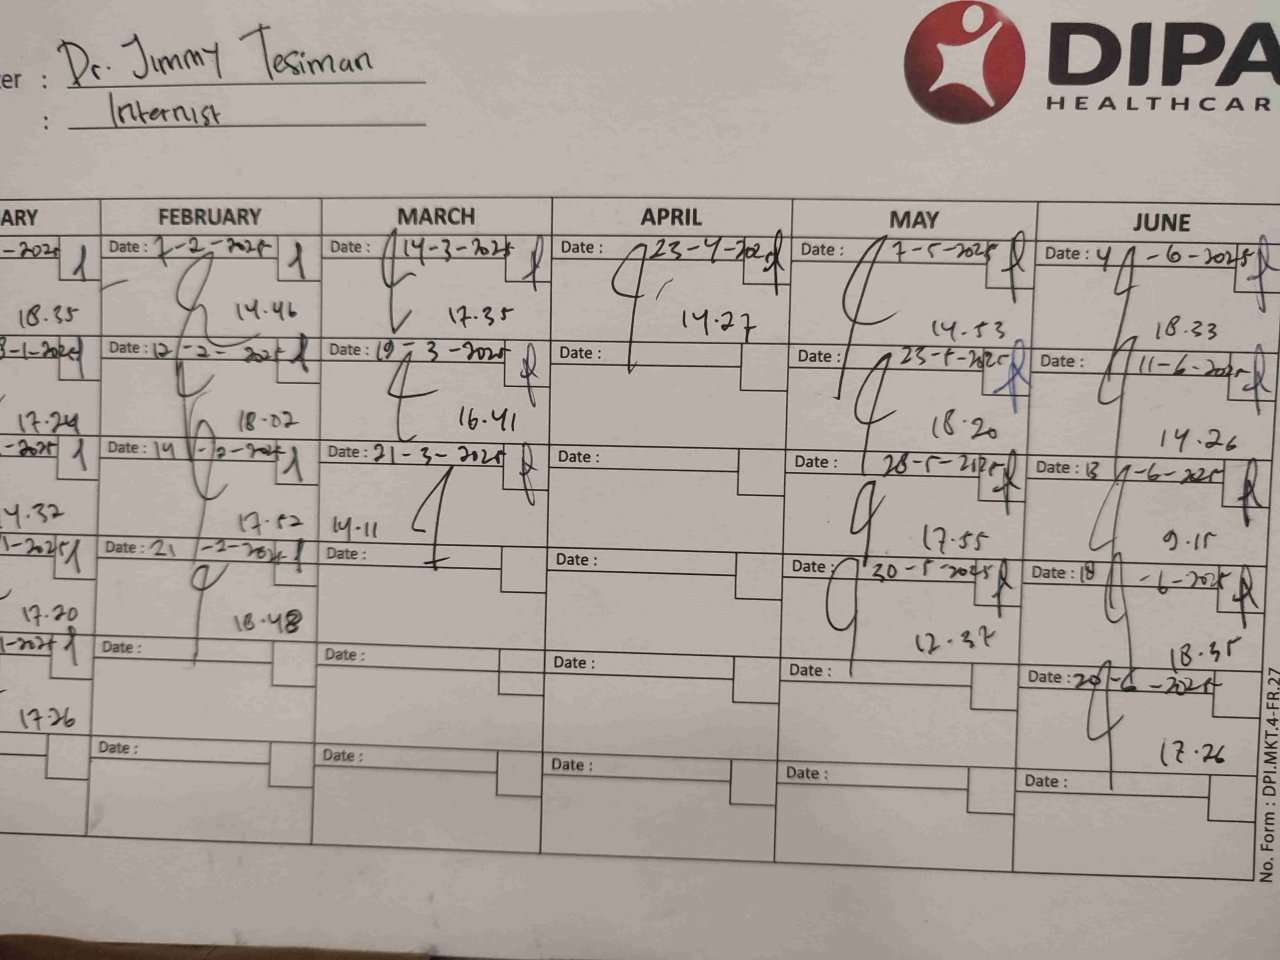 er : Dr. Jimmy Tesiman
: Internist
DIPA
HEALTHCAR
ARY FEBRUARY MARCH APRIL MAY JUNE
-2025 Date : 7-2-2025 Date : 14-3-2025 Date : 23-4-2025 Date : 7-5-2025 Date : 4-6-2025
18.35 14.46 17.35 14.27 14.53 18.33
3-1-2025 Date : 12-2-2025 Date : 19-3-2025 Date : Date : 23-5-2025 Date : 11-6-2025
17.24 18.02 16.41 18.20 14.26
-2025 Date : 14-2-2025 Date : 21-3-2025 Date : Date : 28-5-2025 Date : 13-6-2025
14.32 17.52 14.11 17.55 9.15
1-2025 Date : 21-2-2025 Date : Date : Date : 30-5-2025 Date : 18-6-2025
17.20 18.48 12.37 18.35
1-2025 Date : Date : Date : Date : Date : 20-6-2025
17.26 17.26
Date : Date : Date : Date : Date :
No. Form : DPI.MKT.4-FR.27